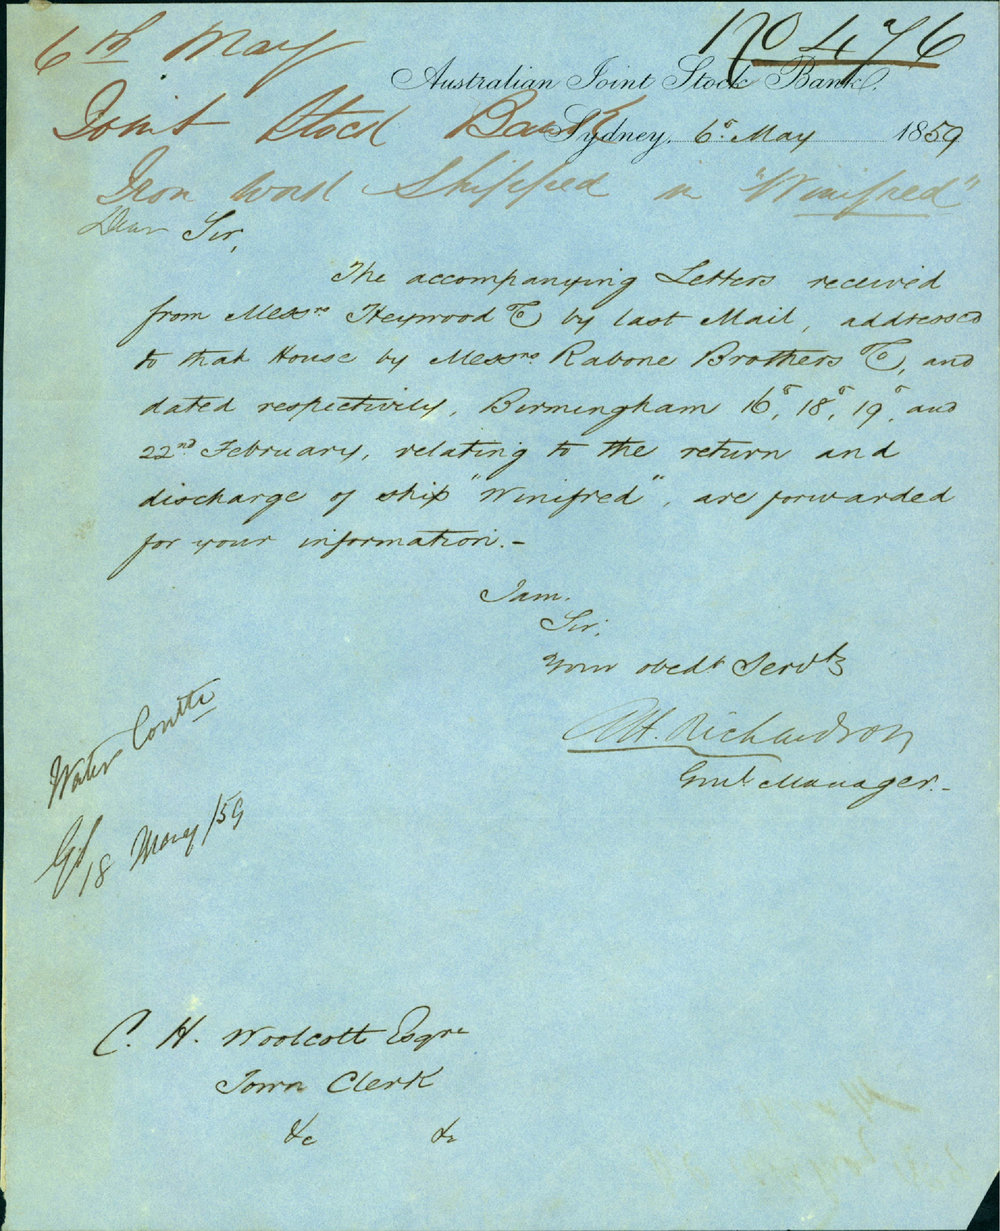 6th May
No 476
Australian Joint Stock Bank.
Joint Stock Bank
Sydney, 6th May 1859
Iron work Shipped in "Winifred"
Dear Sir,
The accompanying Letters received
from Messrs Heywood & Co by last Mail, addressed
to that House by Messrs Rabone Brothers & Co, and
dated respectively, Birmingham 16th, 18th, 19th, and
22nd February, relating to the return and
discharge of ship "Winifred", are forwarded
for your information.-
I am.
Sir.
Your obedt Servt
A H. Richardson
Genl Manager.-
Water Comtte
18 May /59
C. H. Woolcott Esqre
Town Clerk
&c &c